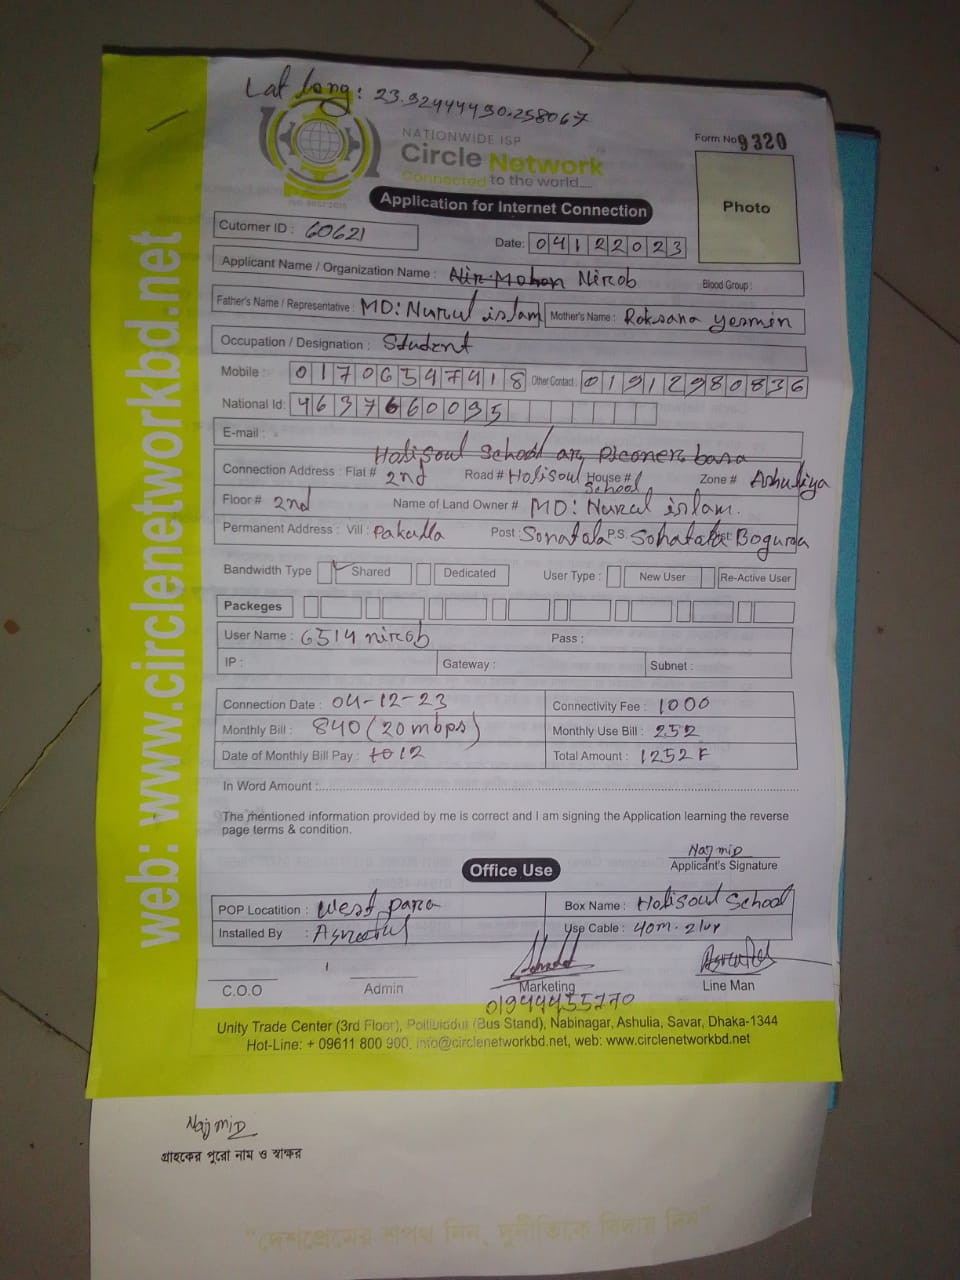 Lat long: 23.92444490.258067
NATIONWIDE ISP
Circle Network
Connected to the world.....
ISO 9001:2015
Form No 9320
Photo
Application for Internet Connection
Cutomer ID : 60621
Date: 04122023
Applicant Name / Organization Name : Nirob
Blood Group :
Father's Name / Representative : MD: Nurul islam
Mother's Name : Roksana yesmin
Occupation / Designation : Student
Mobile : 01706597918 Other Contact : 01912980836
National Id: 4637660095
E-mail :
Holisoul School
Connection Address : Flat # 2nd Road # Holisoul School House # Zone # Ashuliya
Floor # 2nd Name of Land Owner # MD: Nurul islam.
Permanent Address : Vill : Pakulla Post : Sonatala P.S. Sonatala Bogura
Bandwidth Type Shared Dedicated User Type : New User Re-Active User
Packeges
User Name : 6514 nirob Pass :
IP : Gateway : Subnet :
Connection Date : 04-12-23 Connectivity Fee : 1000
Monthly Bill : 840 (20 mbps) Monthly Use Bill : 252
Date of Monthly Bill Pay : to 12 Total Amount : 1252
In Word Amount :
The mentioned information provided by me is correct and I am signing the Application learning the reverse
page terms & condition.
Najmid
Applicant's Signature
Office Use
POP Locatition : West para Box Name : Holisoul School
Installed By : Use Cable : 40m.
C.O.O Admin Marketing Line Man
01944455770
Unity Trade Center (3rd Floor), Pollibiddut (Bus Stand), Nabinagar, Ashulia, Savar, Dhaka-1344
Hot-Line: + 09611 800 900, info@circlenetworkbd.net, web: www.circlenetworkbd.net
web: www.circlenetworkbd.net
Najmid
গ্রাহকের পুরো নাম ও স্বাক্ষর
"দেশপ্রেমের শপথ নিন, দুর্নীতিকে বিদায় দিন"